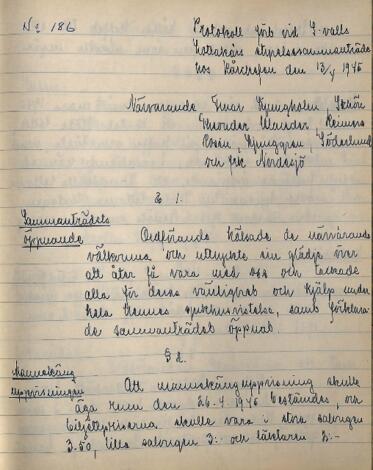 No 186
Protokoll förb vid S-valls
styrelsesammanträde
hos den 13/4 1945
Närvarande Einar Ljungholm,
Reimers
Rosén, Ljunggren, Söderlund
och frk Nordsjö
§ 1.
Sammanträdets
öppnande
Ordförande hälsade de närvarande
välkomna och uttryckte sin glädje över
att åter få vara med oss och tackade
alla för deras vänlighet och hjälp under
hela hennes sjukhusvistelse, samt förklara-
de sammanträdet öppnat.
§ 2.
uppvisningen
Att uppvisning skulle
äga rum den 26.4.1945 bestämdes, och
biljettpriserna skulle vara i stora salongen
3.50, lilla salongen 3:- och läktaren 2:-